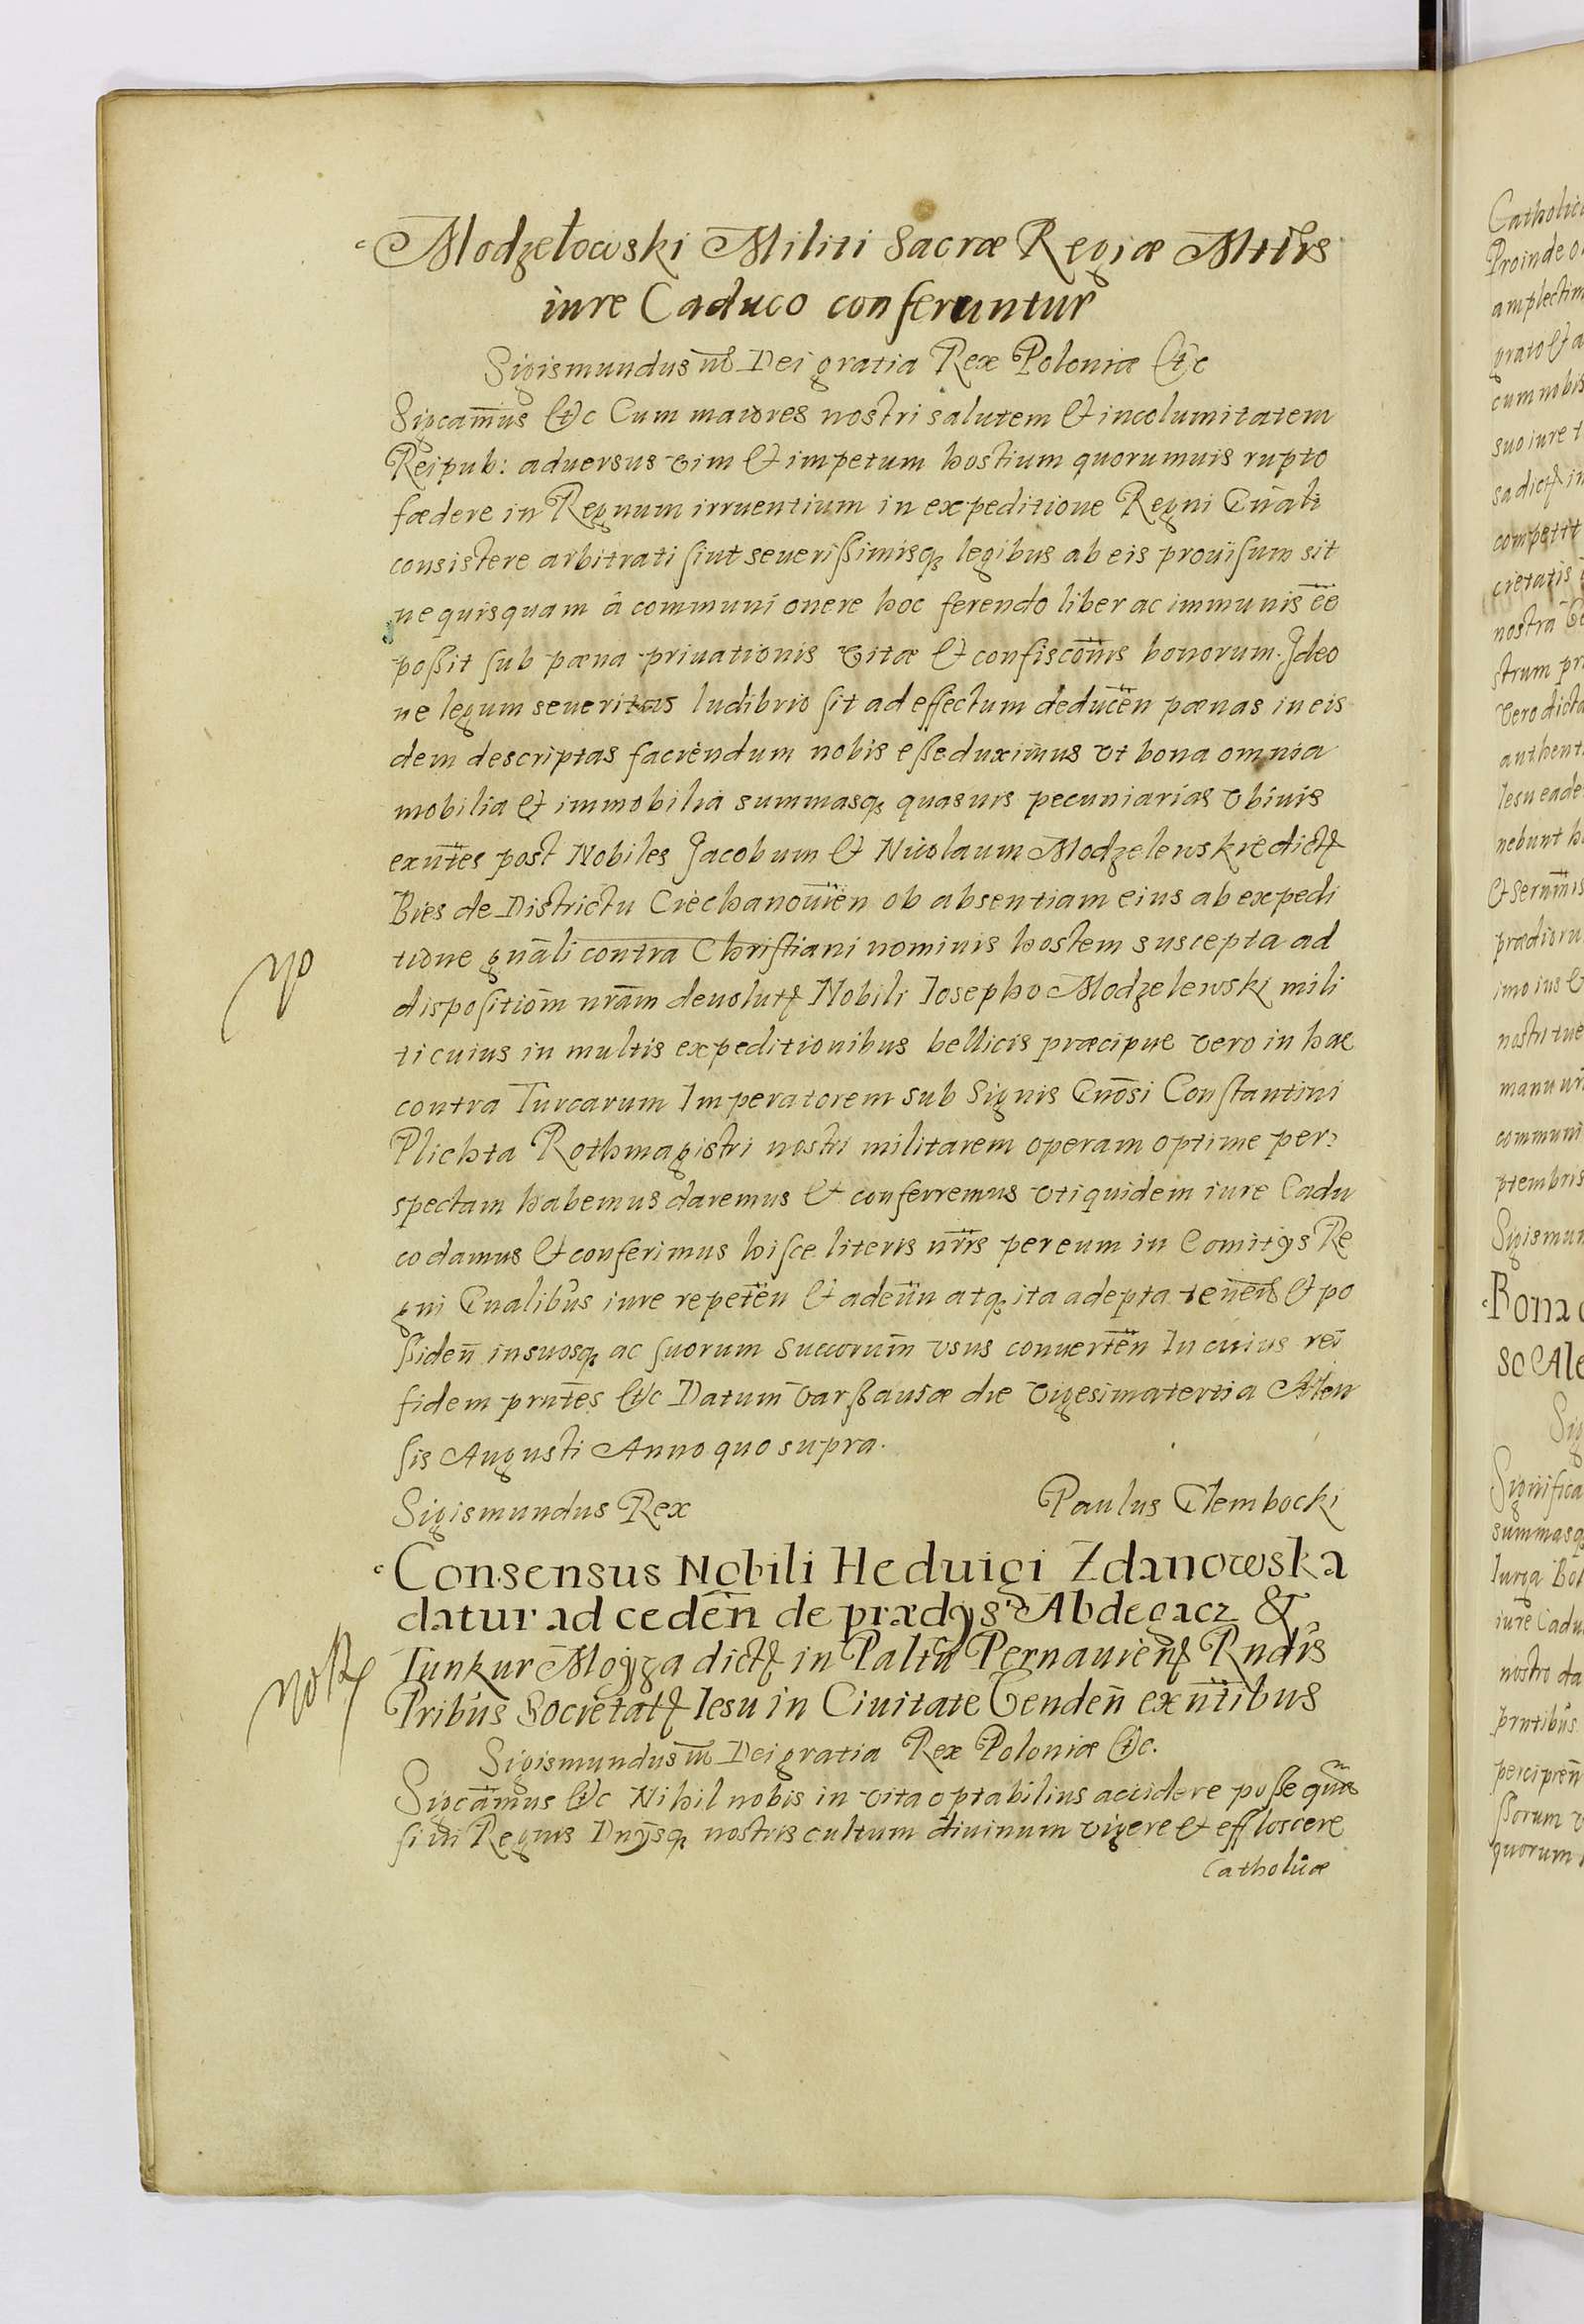 Modzełowski Militi Sacræ Regiæ Mttis
iure Caduco conferuntur
Sigismundus III Dei gratia Rex Poloniæ &c
Sigcamus &c Cum maiores nostri salutem & incolumitatem
Reipub: aduersus vim & impetum hostium quorumuis rupto
fœdere in Regnum irruentium in expeditione Regni Gnali
consistere arbitrati sint seuerißimisq legibus ab eis prouisum sit
ne quisquam â communi onere hoc ferendo liber ac immunis ee
poßit sub pæna priuationis vitæ & confiscoms bonorum. Ideo
ne legum seueritas ludibrio sit ad effectum deducen pænas in eis
dem descriptas faciendum nobis eße duximus vt bona omnia
mobilia & immobilia summasq quasuis pecuniarias vbiuis
exntes post Nobiles Jacobum & Nicolaum Modzelewskie dict
Bies de Districtu Ciechanouien ob absentiam eius ab expedi
tione gnali contra Christiani nominis hostem suscepta ad
dispositiom nram deuolut Nobili Iosepho Modzelewski mili
ti cuius in multis expeditionibus bellicis præcipue vero in hac
contra Turcarum Imperatorem sub Signis Gnosi Constantini
Plichta Rothmagistri nostri militarem operam optime per
spectam habemus daremus & conferremus vti quidem iure Cadu
co damus & conferimus hisce literis nris per eum in Comitijs Re
gni Gnalibus iure repeten & adeun atq ita adepta tenen & po
ßiden in suosq ac suorum Succorum vsus conuerten In cuius rei
fidem prntes &c Datum Varßauiæ die vigesima tertia Men
sis Augusti Anno quo supra.
Sigismundus Rex Paulus Glembocki
Consensus Nobili Heduigi Zdanowska
datur ad ceden de prædijs Abdegacz &
Iunkur Moyza dict in Paltu Pernauien Rndis
Pribus Societat Iesu in Ciuitate Venden exntibus
Sigismundus III Dei gratia Rex Poloniæ &c.
Sigcamus &c Nihil nobis in vita optabilius accidere poße qm
si in Regnis Dnijsq nostris cultum diuinum vigere & efflorcere
Catholicæ
no
Catholic
Proinde o
amplectim
grato & a
cum nobis
suo iure t
competit
cietatis
nostra
strum pr
vero dicta
authent
Iesu eade
nebunt h
prædioru
imo ius &
nostri tue
communi
ptembris
Sigismun
Bona
so Ale
Sig
Significa
summasq
iure Cadu
nostro da
prntibus
percipien
ßorum v
quorum